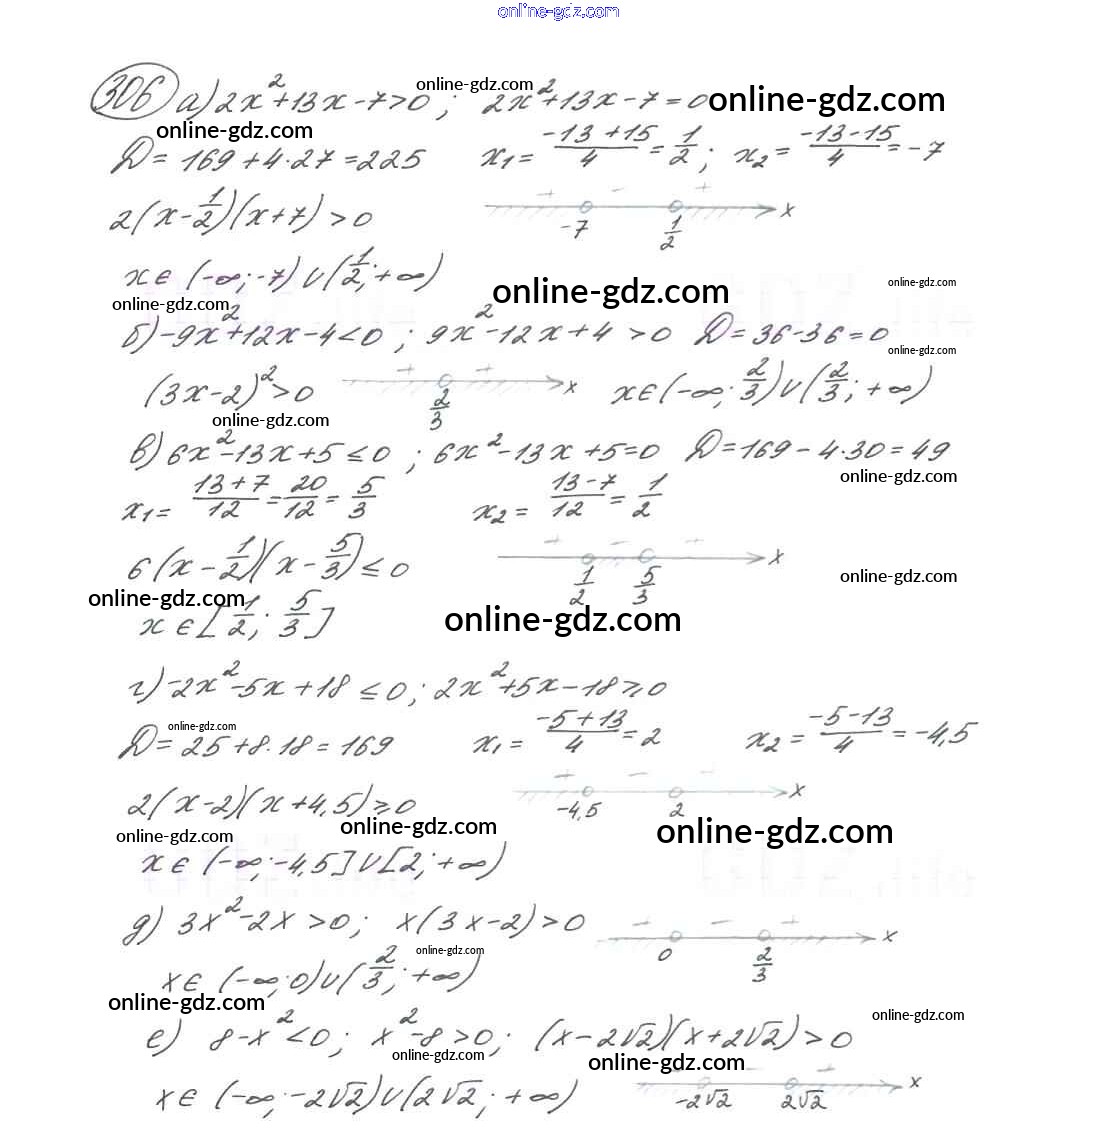 online-gdz.com
306 а) 2x²+13x-7>0; 2x²+13x-7=0
online-gdz.com online-gdz.com
online-gdz.com
D=169+4·27=225 x₁= (-13+15)/4 = 1/2; x₂= (-13-15)/4 = -7
2(x-1/2)(x+7)>0 + - + x
-7 1/2
x∈(-∞;-7)∪(1/2;+∞)
online-gdz.com online-gdz.com online-gdz.com
б) -9x²+12x-4<0; 9x²-12x+4>0 D=36-36=0
online-gdz.com
(3x-2)²>0 + + x x∈(-∞;2/3)∪(2/3;+∞)
2/3
online-gdz.com
в) 6x²-13x+5≤0; 6x²-13x+5=0 D=169-4·30=49
online-gdz.com
x₁= (13+7)/12 = 20/12 = 5/3 x₂= (13-7)/12 = 1/2
6(x-1/2)(x-5/3)≤0 + - + x
1/2 5/3
online-gdz.com
online-gdz.com online-gdz.com
x∈[1/2;5/3]
г) -2x²-5x+18≤0; 2x²+5x-18≥0
online-gdz.com
D=25+8·18=169 x₁= (-5+13)/4 = 2 x₂= (-5-13)/4 = -4,5
2(x-2)(x+4,5)≥0 + - - x
-4,5 2
online-gdz.com online-gdz.com online-gdz.com
x∈(-∞;-4,5]∪[2;+∞)
д) 3x²-2x>0; x(3x-2)>0 + - + x
0 2/3
online-gdz.com
x∈(-∞;0)∪(2/3;+∞)
online-gdz.com online-gdz.com
е) 8-x²<0; x²-8>0; (x-2√2)(x+2√2)>0
online-gdz.com online-gdz.com
x∈(-∞;-2√2)∪(2√2;+∞) + - + x
-2√2 2√2